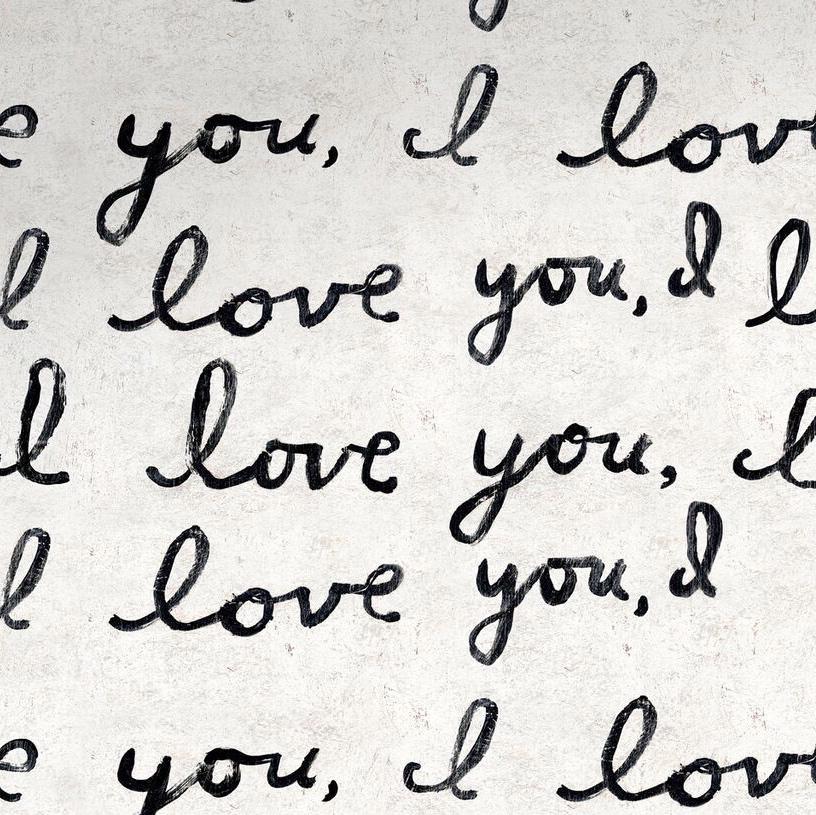 e you, I lov
I love you, I l
I love you, I
I love you, I
e you, I lov